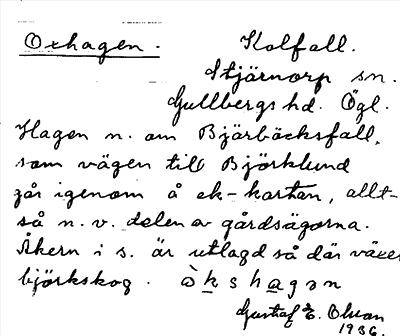 Oxhagen.
Kolfall.
Stjärnorp sn.
Gullbergs hd. Ögl.
Hagen n. om Björbäcksfall,
som vägen till Björklund
går igenom å ek-kartan, allt-
så n. v. delen av gårdsägorna.
Åkern i s. är utlagd så där växer
björkskog. òkshagən
Gustaf E. Olson
1936.